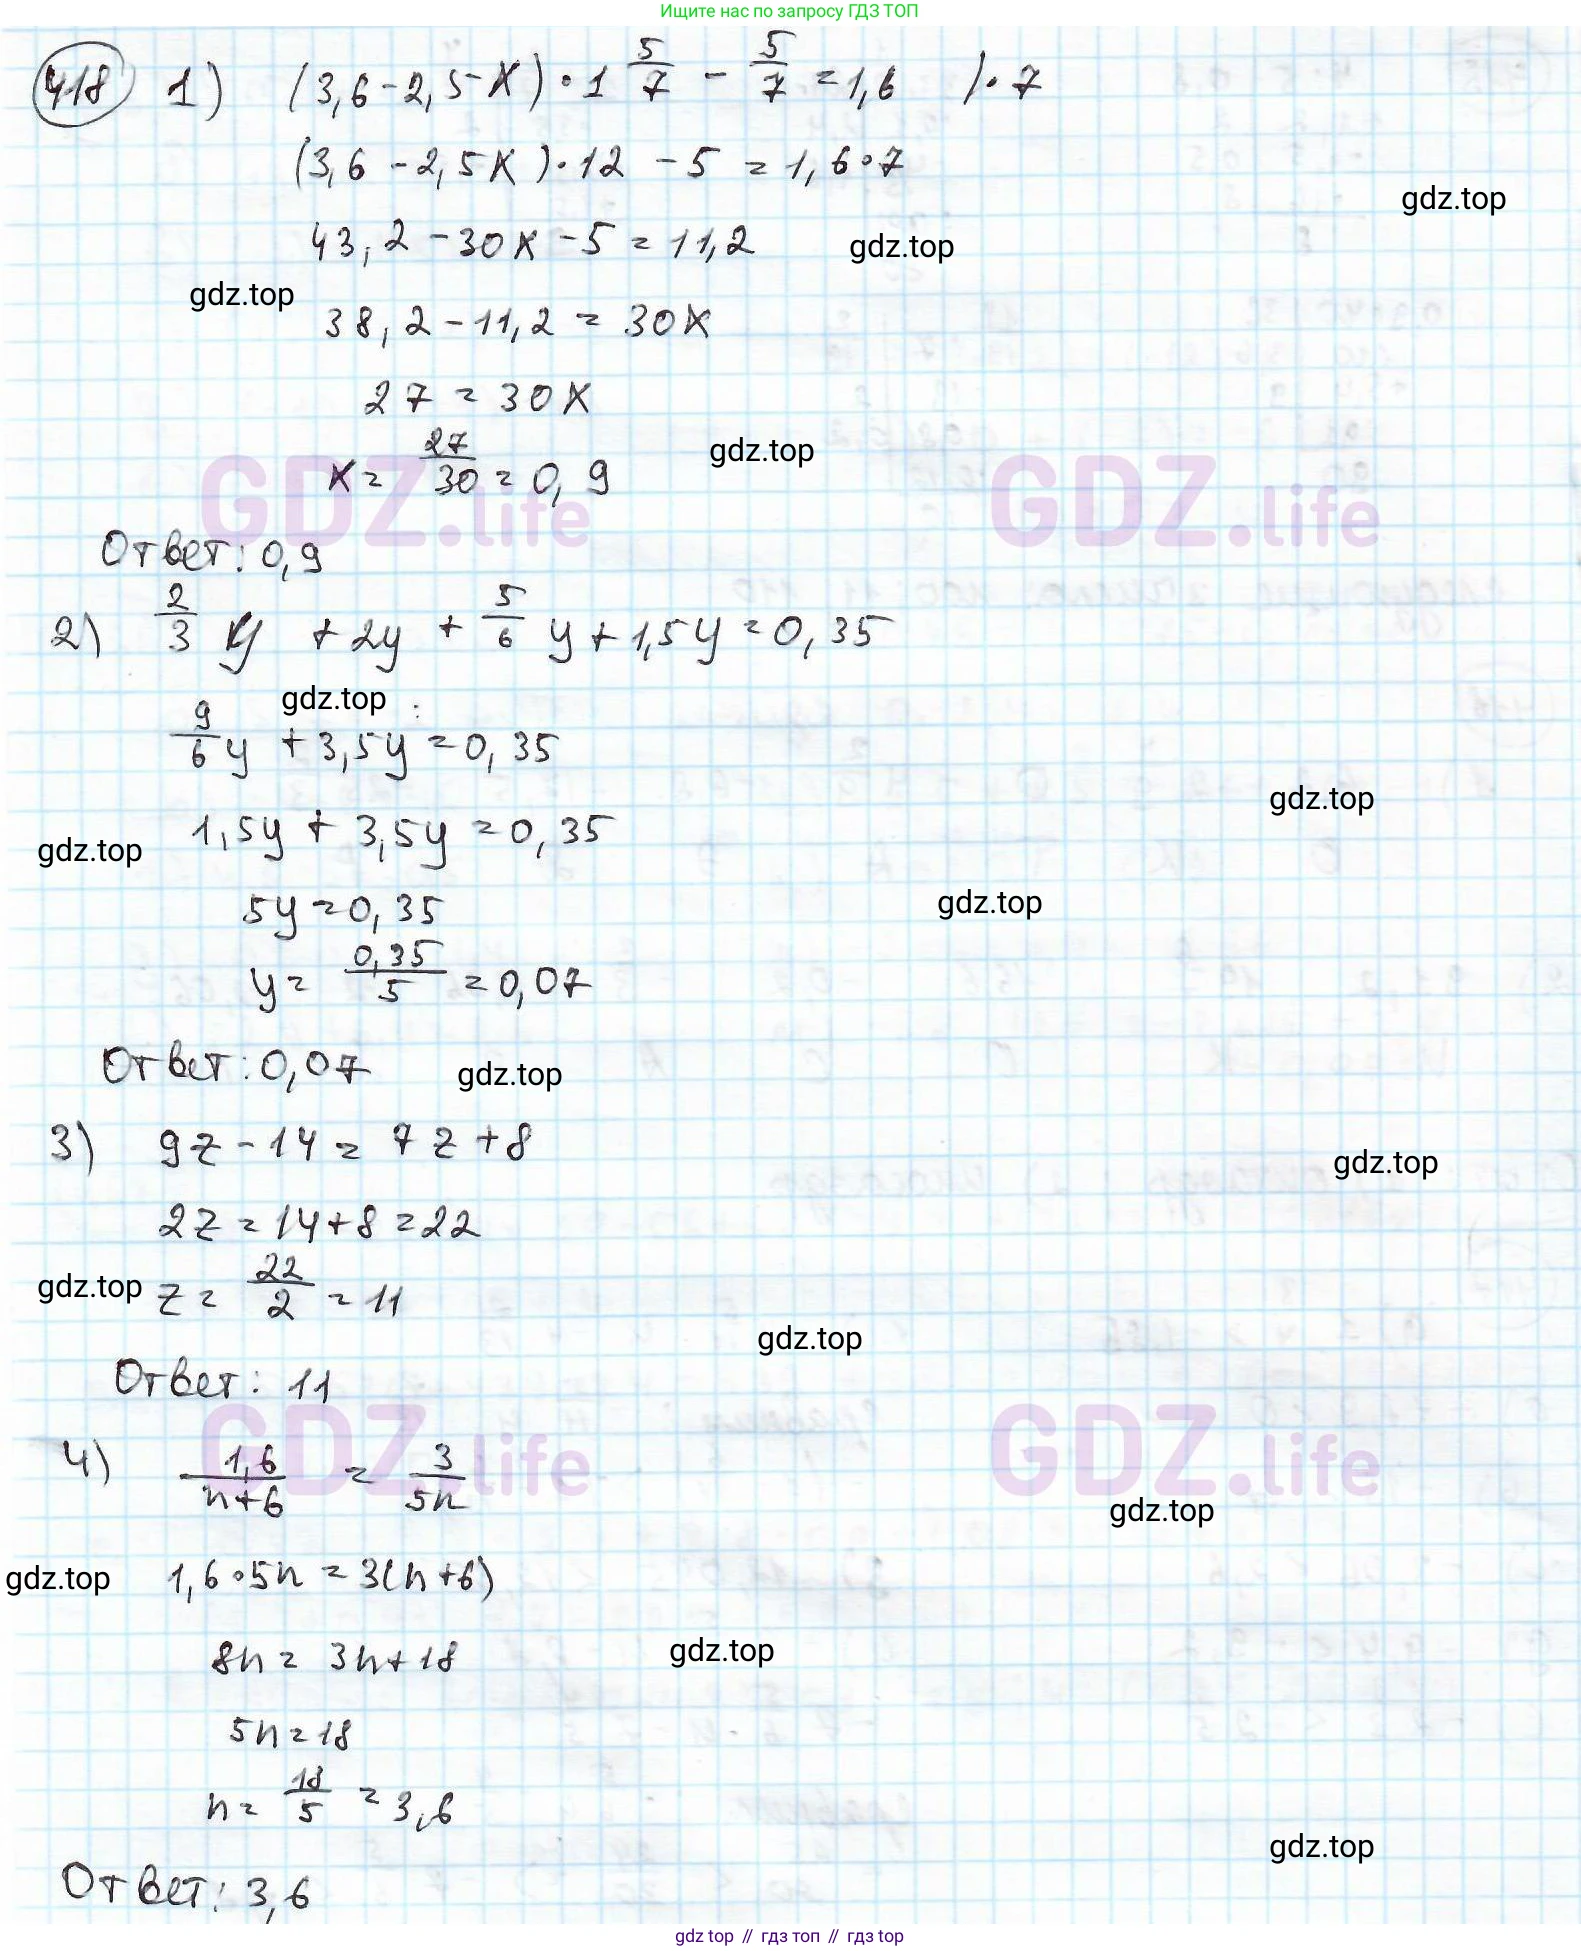 Ищите нас по запросу ГДЗ ТОП
418 1) (3,6 - 2,5x) · 1 5/7 - 5/7 = 1,6 ) · 7
(3,6 - 2,5x) · 12 - 5 = 1,6 · 7
gdz.top
43,2 - 30x - 5 = 11,2
gdz.top
gdz.top
38,2 - 11,2 = 30x
27 = 30x
x = 27/30 = 0,9
gdz.top
GDZ.life GDZ.life
Ответ: 0,9
2) 2/3 y + 2y + 5/6 y + 1,5y = 0,35
gdz.top
9/6 y + 3,5y = 0,35
gdz.top
1,5y + 3,5y = 0,35
gdz.top
5y = 0,35
gdz.top
y = 0,35/5 = 0,07
Ответ: 0,07
gdz.top
3) 9z - 14 = 7z + 8
gdz.top
2z = 14 + 8 = 22
gdz.top
z = 22/2 = 11
gdz.top
Ответ: 11
GDZ.life GDZ.life
4) 1,6/(n+6) = 3/5n
gdz.top
gdz.top
1,6 · 5n = 3(n+6)
8n = 3n + 18
gdz.top
5n = 18
n = 18/5 = 3,6
gdz.top
Ответ: 3,6
gdz top // гдз топ // gdz top